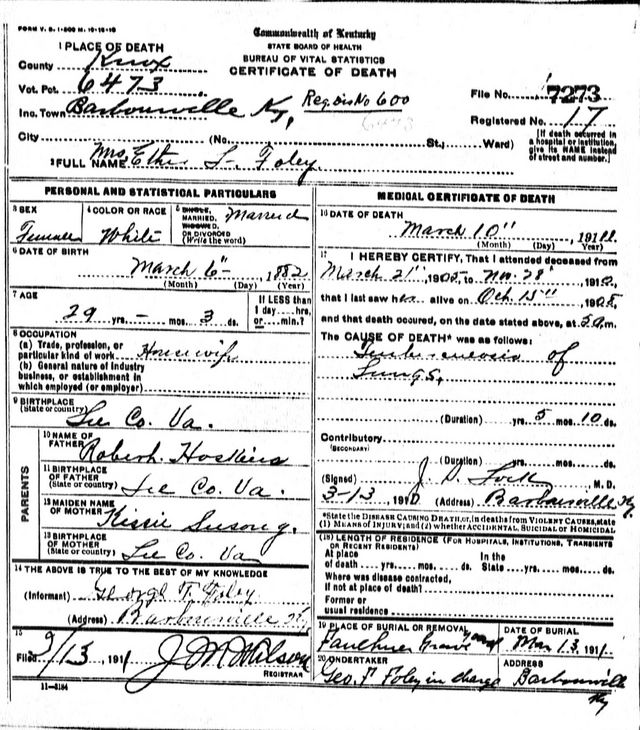 FORM V. S. 1-500 M. 10-18-10
Commonwealth of Kentucky
STATE BOARD OF HEALTH
BUREAU OF VITAL STATISTICS
CERTIFICATE OF DEATH
1 PLACE OF DEATH
County Knox
Vot. Pot. 6473
Inc. Town Barbourville Ky, Reg Dis No 600
City (No. St.; Ward)
File No. 7273
Registered No. 17
[If death occurred in a hospital or institution, give its NAME instead of street and number.]
2 FULL NAME Mrs. L. Foley
PERSONAL AND STATISTICAL PARTICULARS
3 SEX Female
4 COLOR OR RACE White
5 SINGLE, MARRIED, WIDOWED, OR DIVORCED (Write the word) Married
6 DATE OF BIRTH
March 6", 1882
(Month) (Day) (Year)
7 AGE
29 yrs. – mos. 3 ds.
If LESS than 1 day---hrs. or---min.?
8 OCCUPATION
(a) Trade, profession, or particular kind of work Housewife
(b) General nature of industry business, or establishment in which employed (or employer)
9 BIRTHPLACE (State or country) Lee Co. Va.
PARENTS
10 NAME OF FATHER Robert Hoskins
11 BIRTHPLACE OF FATHER (State or country) Lee Co. Va.
12 MAIDEN NAME OF MOTHER Kissie
13 BIRTHPLACE OF MOTHER (State or country) Lee Co. Va
14 THE ABOVE IS TRUE TO THE BEST OF MY KNOWLEDGE
(Informant) George F. Foley
(Address) Barbourville Ky
15
Filed 3/13, 1911 J M Wilson
REGISTRAR
11-3184
MEDICAL CERTIFICATE OF DEATH
16 DATE OF DEATH
March 10", 1911
(Month) (Day) (Year)
17 I HEREBY CERTIFY, That I attended deceased from
March 21", to Nov. 28", 1910,
that I last saw her alive on Oct. 13"
and that death occured, on the date stated above, at m.
The CAUSE OF DEATH* was as follows:
Tuberculosis of
Lungs.
(Duration) yrs. 5 mos. 10 ds.
Contributory
(SECONDARY)
(Duration) yrs. mos. ds.
(Signed) J. , M. D.
3-13, 191 (Address) Barbourville Ky
*State the DISEASE CAUSING DEATH, or, in deaths from VIOLENT CAUSES, state (1) MEANS OF INJURY; and (2) whether ACCIDENTAL, SUICIDAL or HOMICIDAL
(18) LENGTH OF RESIDENCE (FOR HOSPITALS, INSTITUTIONS, TRANSIENTS OR RECENT RESIDENTS)
At place of death yrs. mos. ds. In the State yrs. mos. ds.
Where was disease contracted, If not at place of death?
Former or usual residence
19 PLACE OF BURIAL OR REMOVAL Faulkner Grave yard
DATE OF BURIAL Mar 13, 1911.
20 UNDERTAKER Geo. F Foley in charge
ADDRESS Barbourville Ky